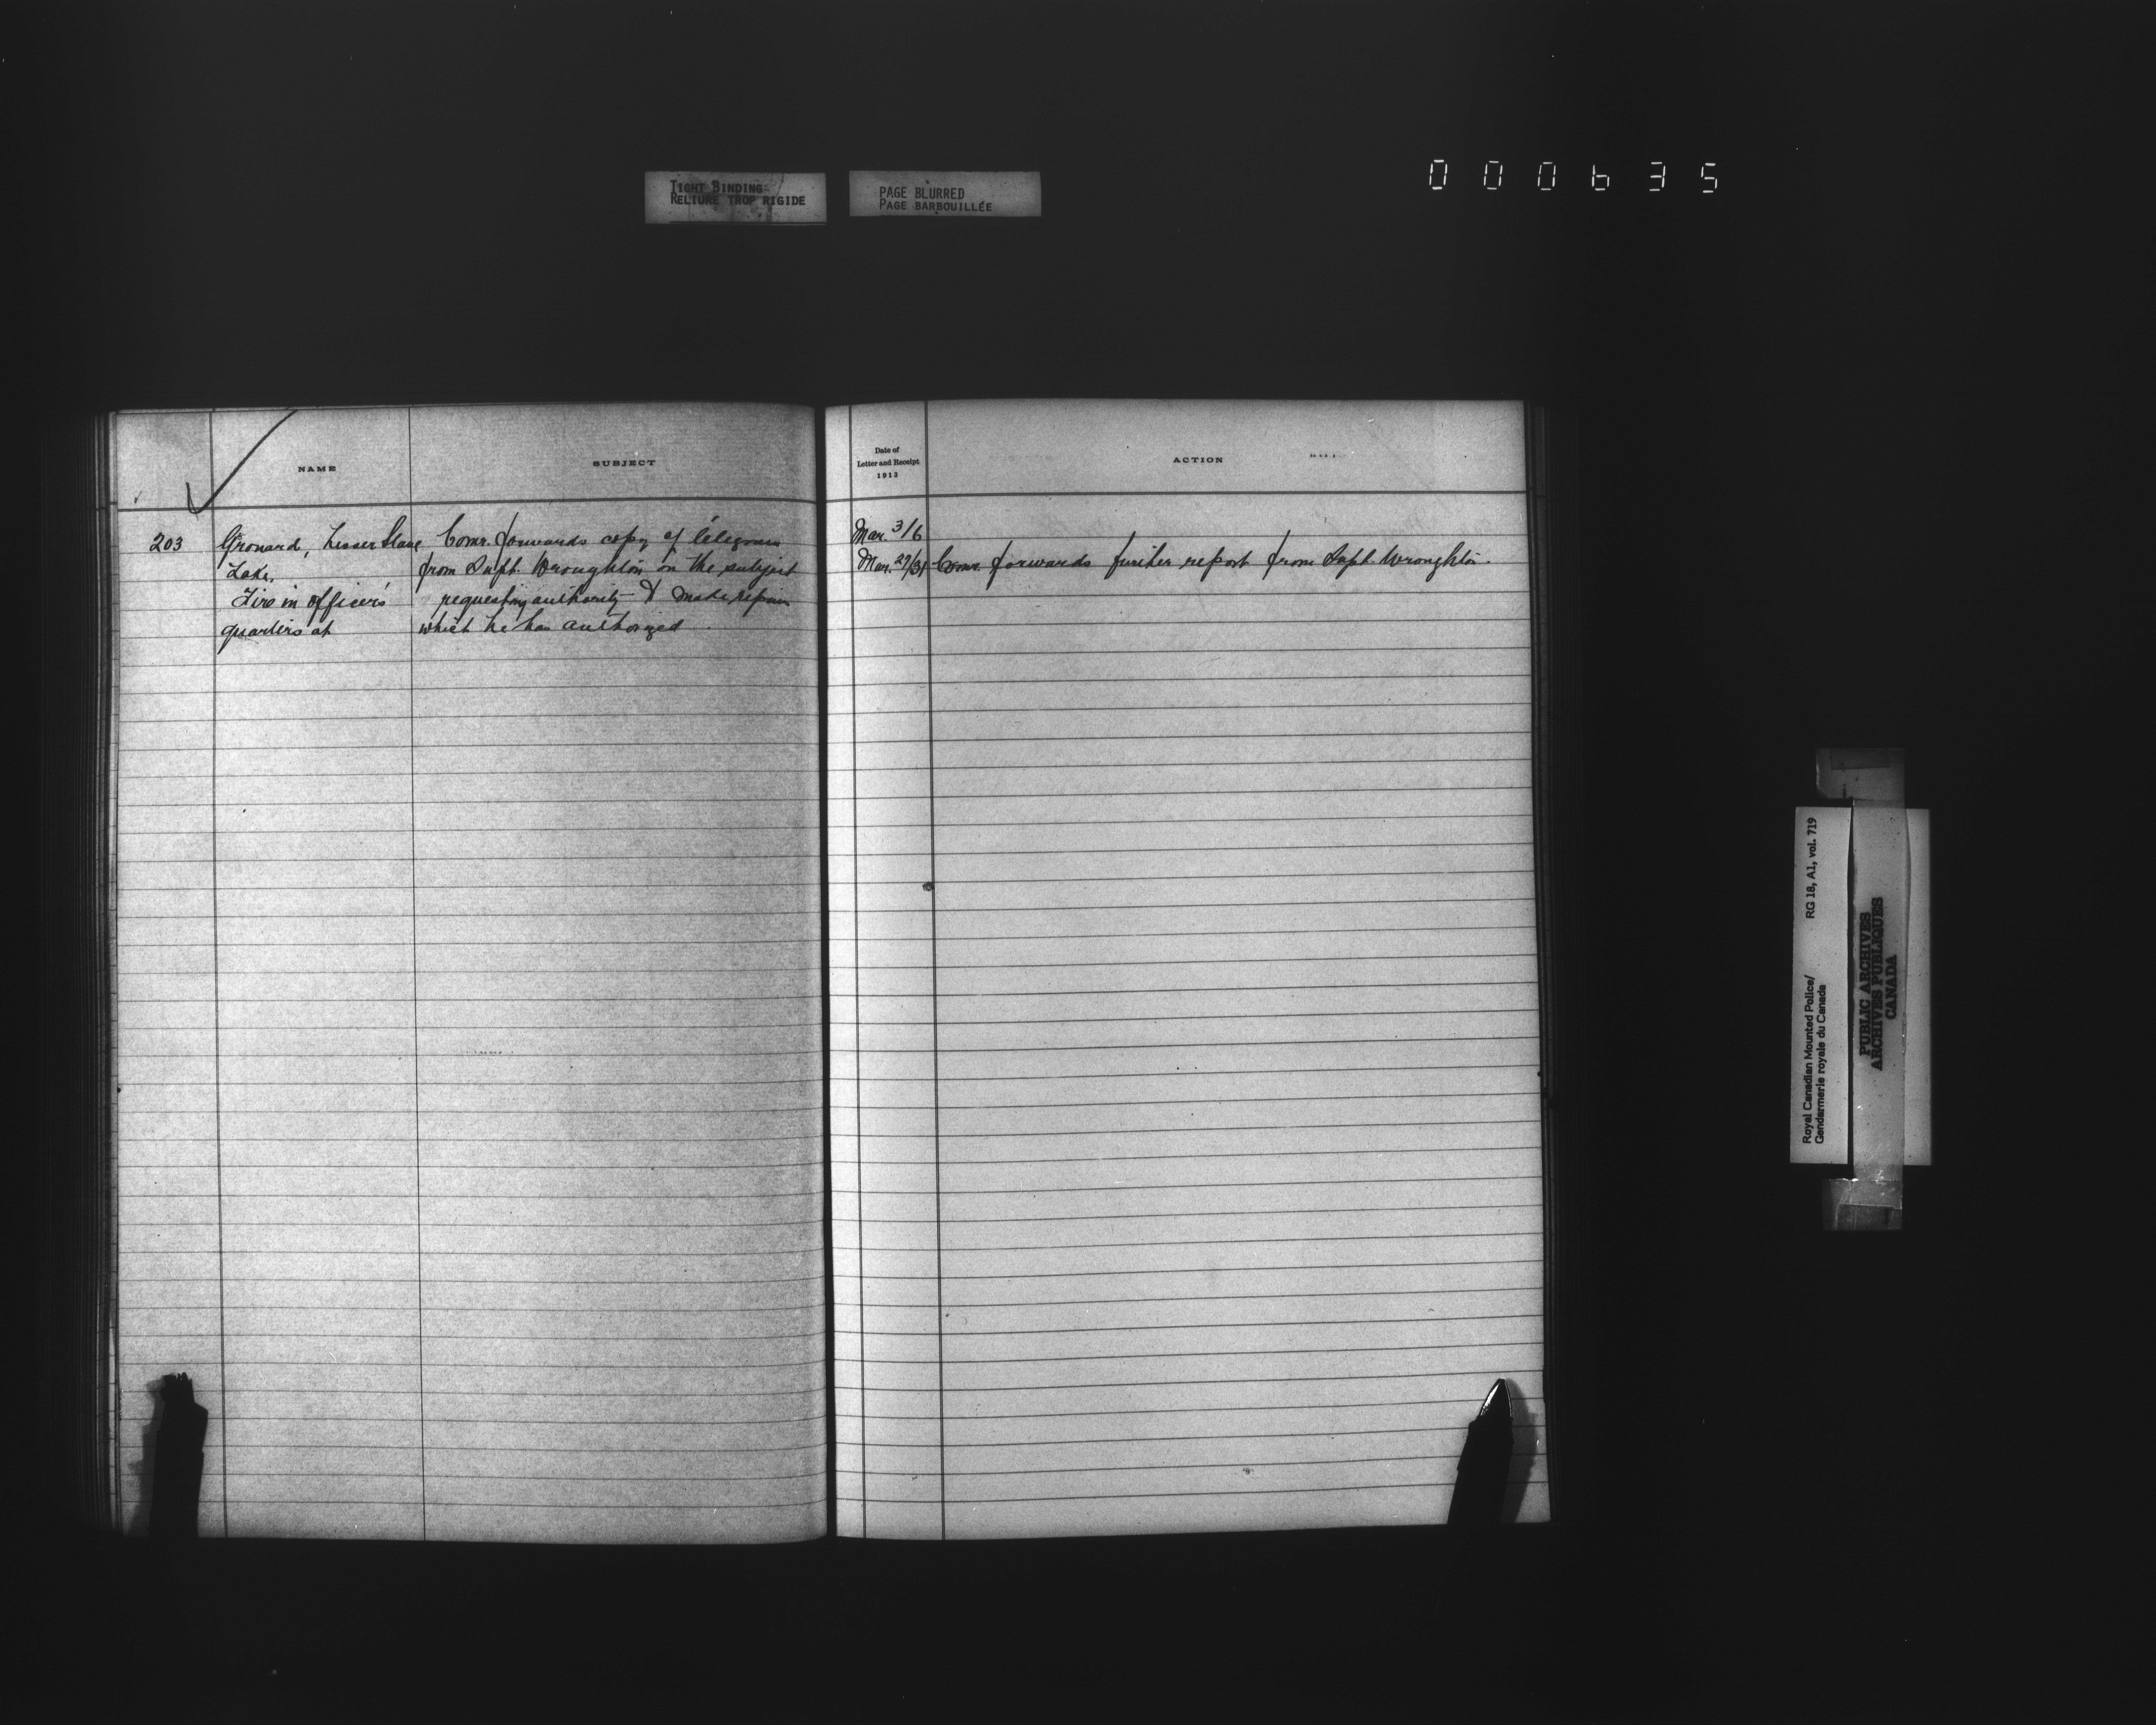 TIGHT BINDING
RELIURE TROP RIGIDE
PAGE BLURRED
PAGE BARBOUILLÉE
000635
NAME
SUBJECT
Date of
Letter and Receipt
1913
ACTION
203
Grouard, Lesser Slave
Lake.
Fire in officer's
quarters at
Comr. forwards copy of telegram
from Supt. Wroughton on the subject
requesting authority to make repairs
which he has authorized.
Mar. 3/6
Mar. 27/31 Comr. forwards further report from Supt. Wroughton.
Royal Canadian Mounted Police/
Gendarmerie royale du Canada
RG 18, A1, vol. 719
PUBLIC ARCHIVES
ARCHIVES PUBLIQUES
CANADA